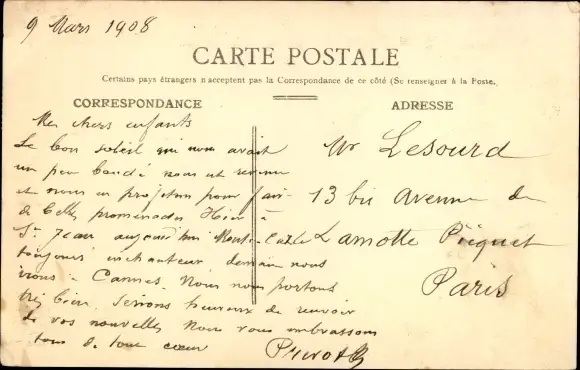 9 Mars 1908
CARTE POSTALE
Certains pays étrangers n'acceptent pas la Correspondance de ce côté (Se renseigner à la Poste.
CORRESPONDANCE
Mes chers enfants
Le bon soleil qui nous avait
un peu boudé nous est revenu
et nous en profitons pour faire
de belles promenades Hier à
St Jean aujourd'hui Mont
toujours enchanteur demain nous
irons à Cannes. Nous nous portons
très bien. Serions heureux de recevoir
de vos nouvelles Nous vous embrassons
tous de tout cœur
ADRESSE
Mr Lesourd
13 bis Avenue de
Lamotte Picquet
Paris